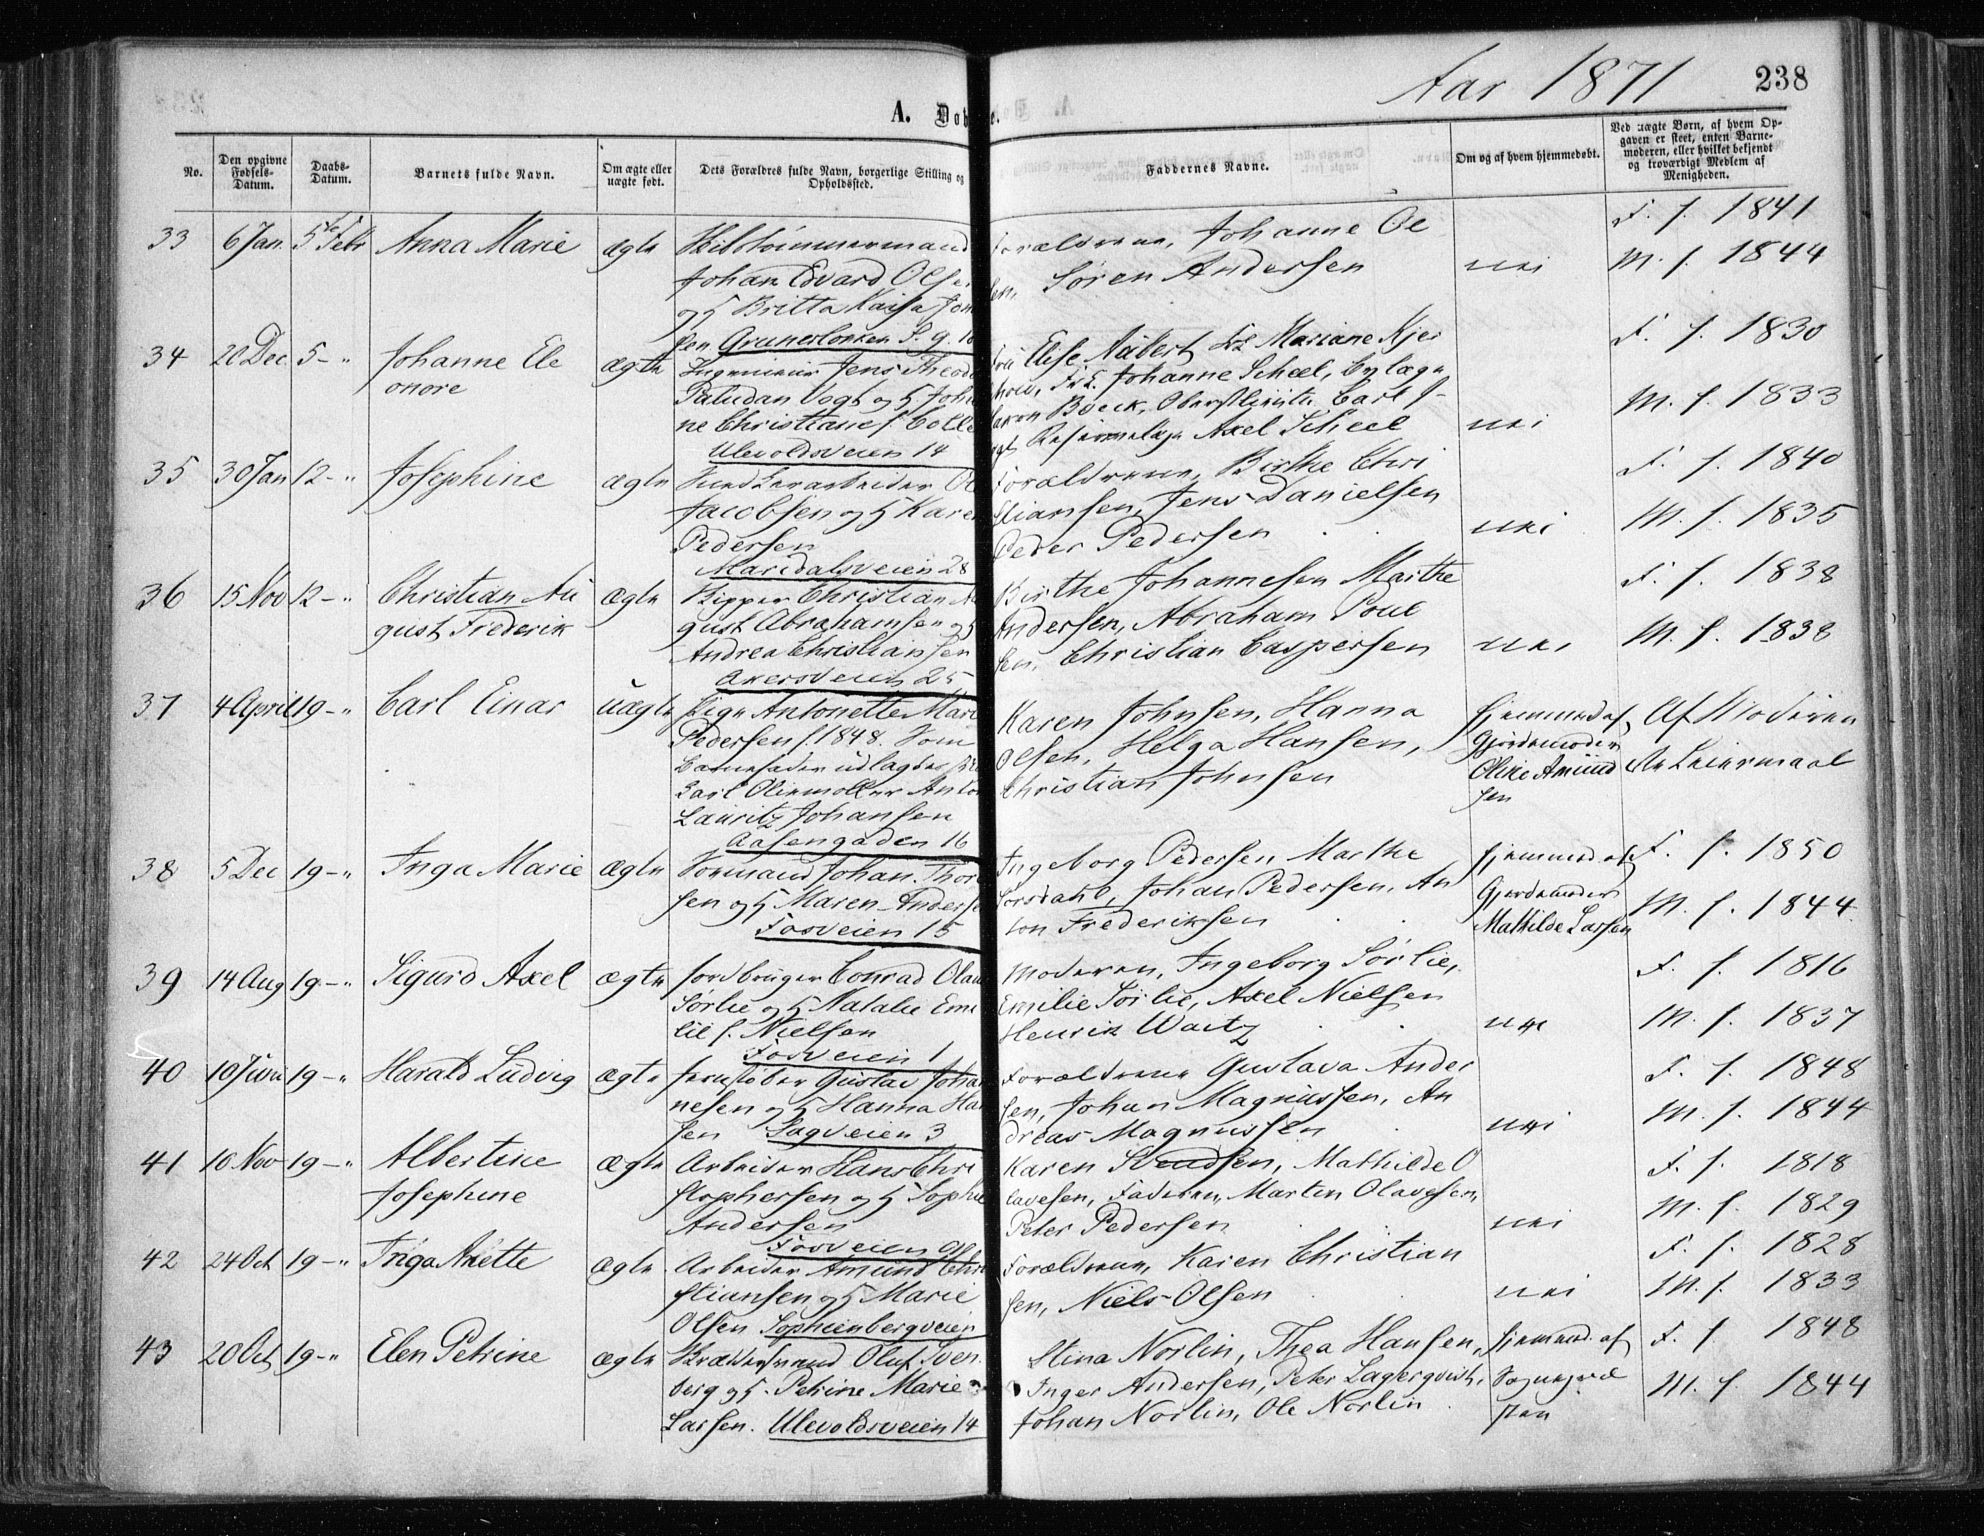 Aar 1871
238
A. Døbte.
No.
Den opgivne Fødsels-Datum.
Daabs-Datum.
Barnets fulde Navn.
Om ægte eller uægte født.
Dets Forældres fulde Navn, borgerlige Stilling og Opholdssted.
Faddernes Navne.
Om og af hvem hjemmedøbt.
Ved uægte Børn, af hvem Opgaven er skeet, enten Barnemoderen, eller hvilket bekjendt og troværdigt Medlem af Menigheden.
33 6 Jan. 5te Febr Anna Marie ægte
Johan Edvard Olse
og H Britta Kaisa Jon
sen Grunerløkken
Forældrene, Johanne Ol
sen, Søren Andersen nei
F. f. 1841
M. f. 1844
34 20 Dec. 5 - " Johanne Ele
onore ægte
Ingenieur Jens Theodor
Paludan Vogt og H. Joha
ne Christiane f Colle
Ulevoldsveien 14
Fru Elise Aubert Frk Mariane Kjer
Frk. Johanne Scheel,
Boeck, Oberstlieutn. Carl J-
Axel Scheel nei
F. f. 1830
M. f. 1833
35 30 Jan 12 - " Josephine ægte
Jacobsen og H Karen
Pedersen
Maridalsveien 28
Forældrene, Birthe Chri
stiansen, Jens Danielsen
Peder Pedersen nei
F. f. 1840
M. f. 1835
36 15 Nov 12 - " Christian Au
gust Frederik ægte
Christian Au
gust Abrahamsen og H
Andrea Christiansen
Akersveien 25
Birthe Johannesen Marthe
Andersen, Abraham Poul
sen, Christian Caspersen nei
F. f. 1838
M. f. 1838
37 4 April 19 - " Carl Einar uægte
Pige Antonette Marie
Pedersen f. 1848. Som
Barnefader udlagdes
Carl Oliemøller Anton
Lauritz Johansen
Aasengaden 16
Karen Johnsen, Hanna
Olsen, Helga Hansen,
Christian Johnsen
hjemmed af
Gjordemoder
Oline Amund
sen
Af Moderen
Leiermaal
38 5 Dec 19 - " Inga Marie ægte
Formand Johan Thor
sen og H Maren Anderse
Fosveien 15
Ingeborg Pedersen Marthe
Johan Pedersen, An
ton Frederiksen
hjemmed af
Gjordemoder
Mathilde Larsen
F. f. 1850
M. f. 1844
39 14 Aug 19 - " Sigurd Axel ægte
Jordbruger Conrad Olaus
Sørlie og H Natalie Emi
lie f. Nielsen
Fosveien 1
Moderen, Ingeborg Sørlie,
Emilie Sørlie, Axel Nielsen
Henrik Waitz nei
F. f. 1816
M. f. 1837
40 10 Juni 19 - " Harald Ludvig ægte
Jernstøber Gustav Johan
nesen og H Hanna Han
sen Sagveien 3
Forældrene Gustava Ander
sen, Johan Magnussen, An
dreas Magnussen nei
F. f. 1848
M. f. 1844
41 10 Nov 19 - " Albertine
Josephine ægte
Arbeider Hans Chri
stophersen og H Sophie
Andersen
Fosveien
Karen Svendsen, Mathilde O
lavesen, Faderen, Martin Olavesen,
Peter Pedersen nei
F. f. 1818
M. f. 1829
42 24 Oct 19 - " Inga Anette ægte
Arbeider Amund Chri
stiansen og H Marie
Olsen Sophienbergveien
Forældrene, Karen Christian
sen, Niels Olsen nei
F. f. 1828
M. f. 1833
43 20 Oct 19 - " Elen Petrine ægte
Oluf Sven
berg og H. Petrine Marie
Larsen. Ulevoldsveien 14
Stina Norlin, Thea Hansen,
Inger Andersen, Peter Lagerqvist,
Johan Norlin, Ole Norlin
hjemmed. af
Sognepræ
sten
F. f. 1848
M. f. 1844